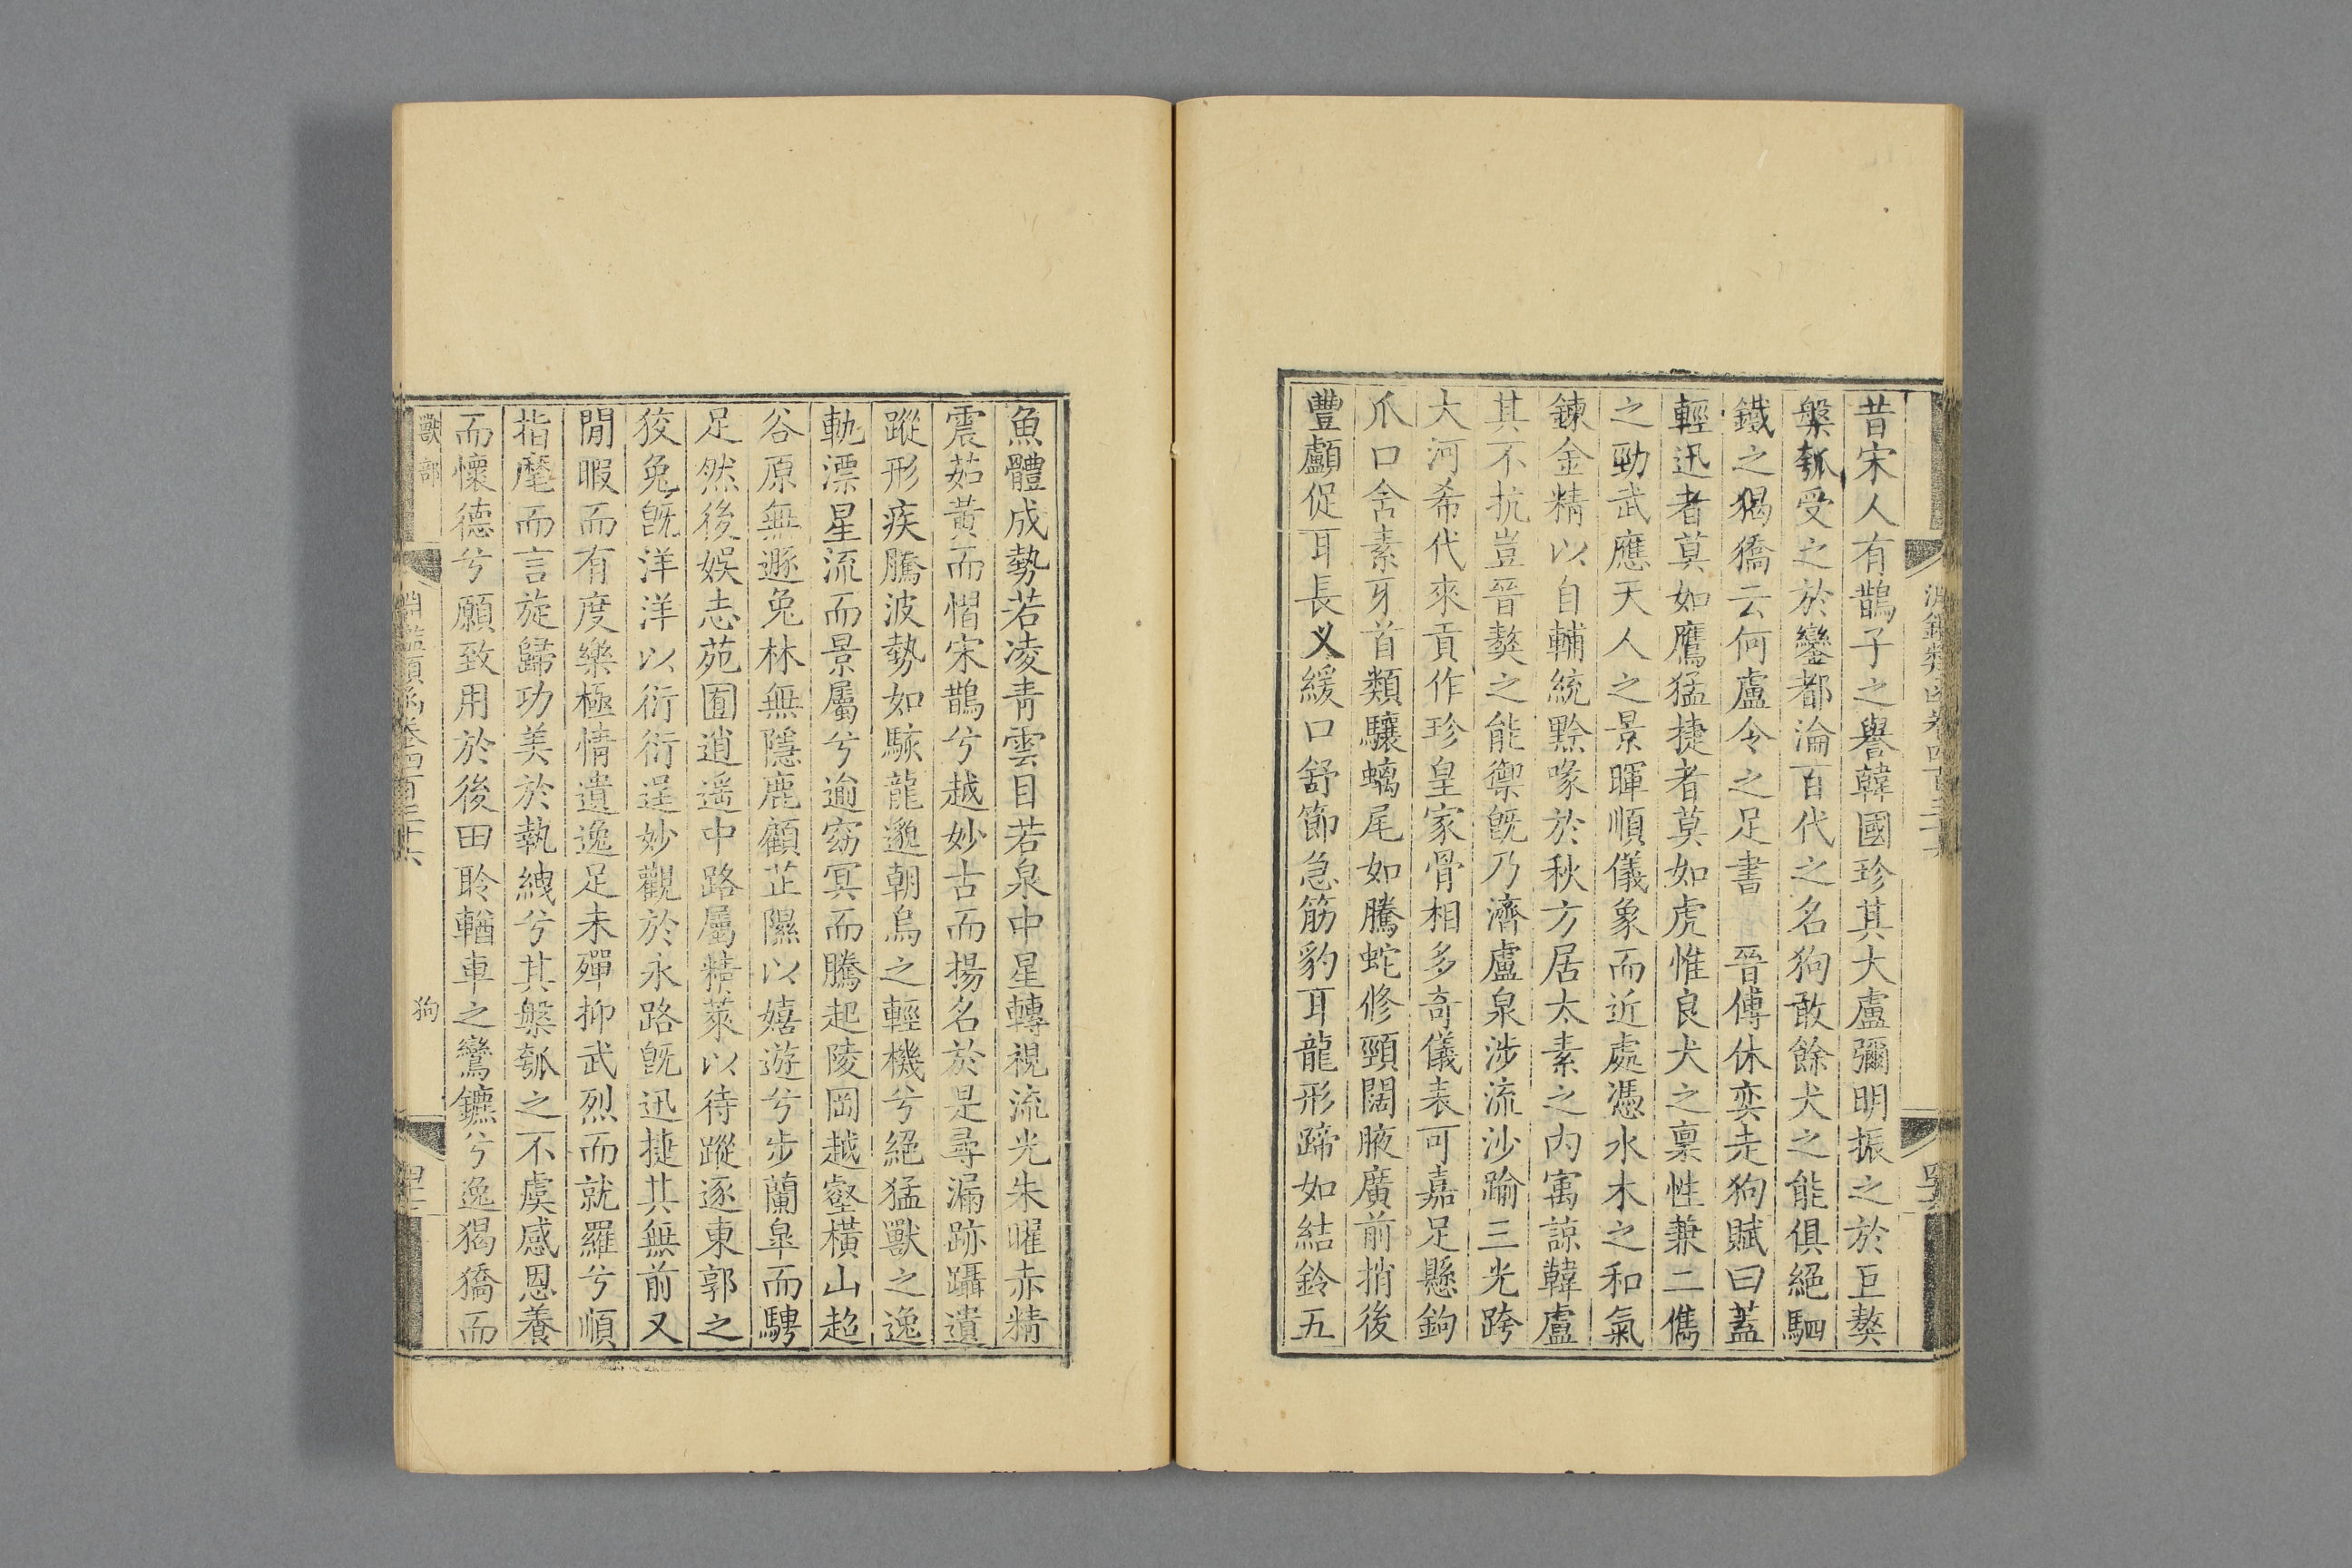 昔宋人有鵲子之譽韓國珍其大盧彌明振之於巨獒
槃瓠受之於鑾都淪百代之名狗敢餘犬之能俱絕駟
鐵之猲獢云何盧令之足書 晉傅休奕走狗賦曰蓋
輕迅者莫如鷹猛捷者莫如虎惟良犬之稟性兼二儁
之勁武應天人之景暉順儀象而近處憑水木之和氣
鍊金精以自輔統黔喙於秋方居太素之內寓諒韓盧
其不抗豈晉獒之能禦旣乃濟盧泉涉流沙踰三光跨
大河希代來貢作珍皇家骨相多奇儀表可嘉足懸鉤
爪口含素牙首類驤螭尾如騰蛇修頸闊腋廣前捎後
豐顱促耳長义緩口舒節急筋豹耳龍形蹄如結鈴五
魚體成勢若凌青雲目若泉中星轉視流光朱曜赤精
震茹黃而慴宋鵲兮越妙古而揚名於是尋漏跡躡遺
蹤形疾騰波勢如駭龍邈朝烏之輕機兮絕猛獸之逸
軌漂星流而景屬兮逾窈冥而騰起陵岡越壑橫山超
谷原無遯兔林無隱鹿顧芷隰以嬉遊兮步蘭皐而騁
足然後娛志苑囿逍遙中路屬精萊以待蹤逐東郭之
狡兔旣洋洋以衍衍逞妙觀於永路旣迅捷其無前又
閒暇而有度樂極情遺逸足未殫抑武烈而就羅兮順
指麾而言旋歸功美於執紲兮其槃瓠之不虞感恩養
而懷德兮願致用於後田聆輶車之鸞鑣兮逸猲獢而
獸部 淵鑑類函卷四百三十六 狗